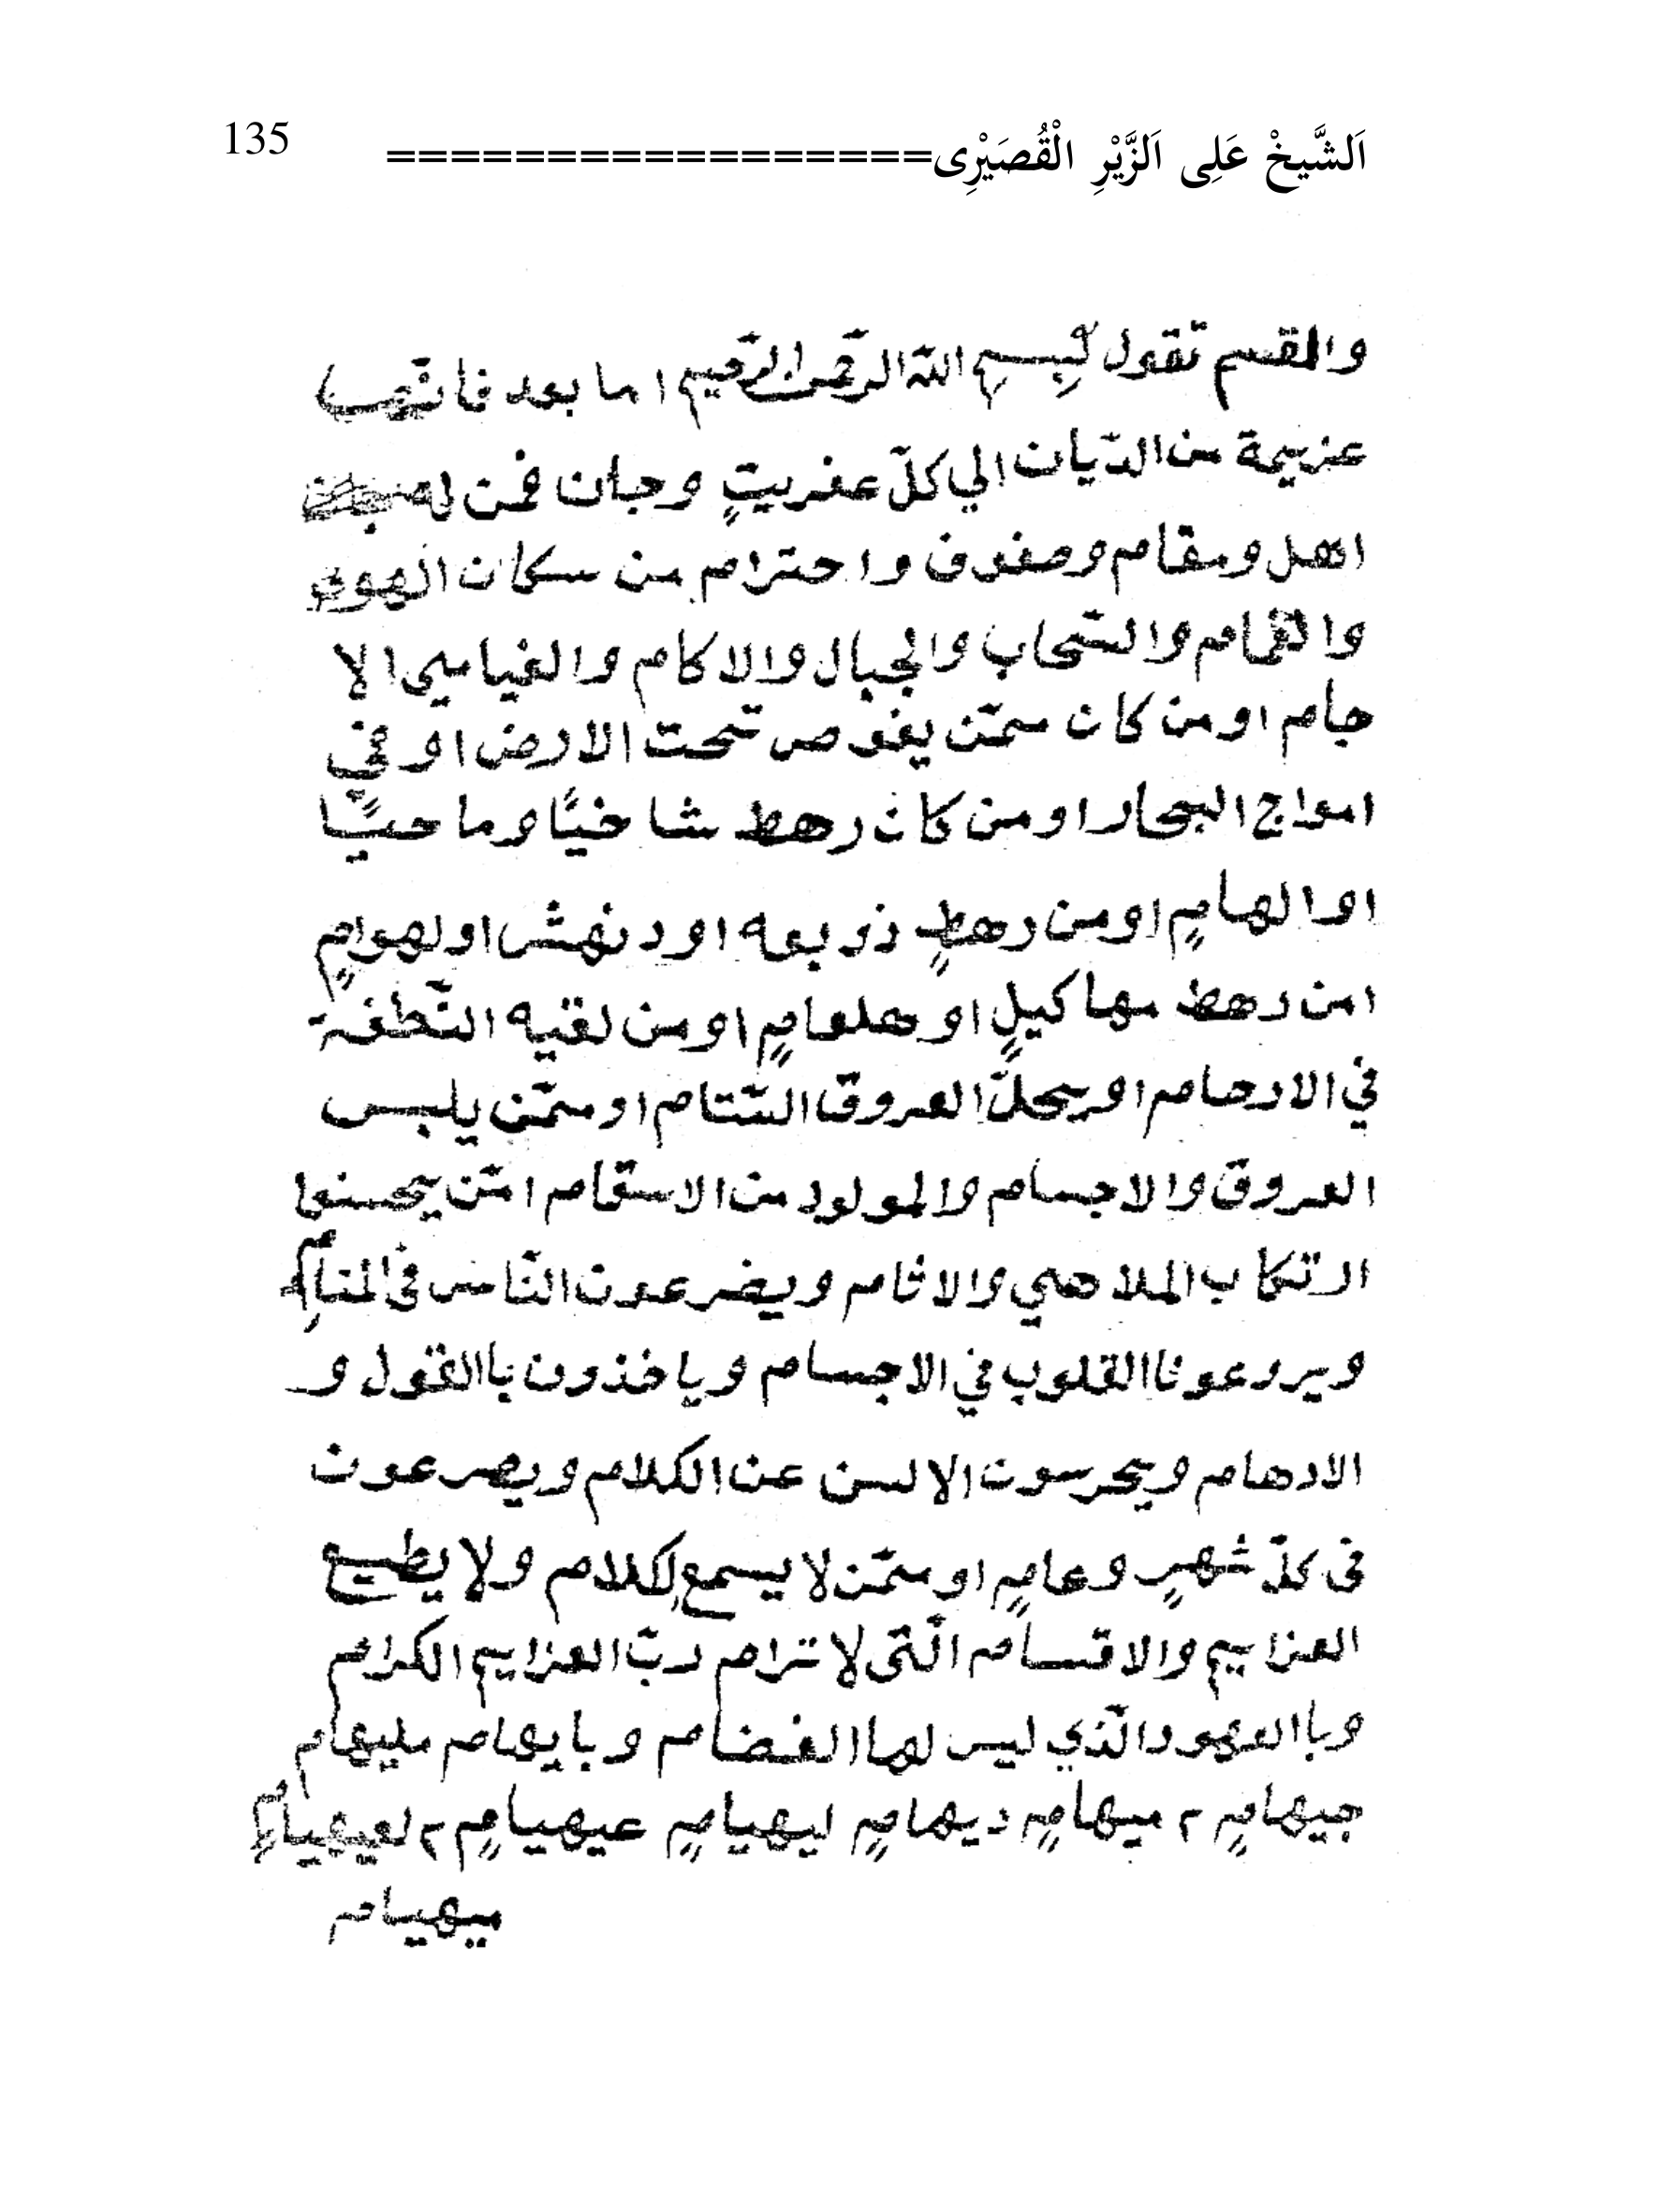 اَلشَّيخْ عَلِى اَلزَّيْرِ الْقُصَيْرِى================= 135
والقسم تقول بِسمِ اللّه الرّحمن الرّحيم اما بعد
عزيمة من الدّيان الي كلّ عفريتٍ وجان فمن له
اهل ومقام وصفوف واحترام من سكان الهوى
والغمام والسّحاب والجبال والاكام والفيافي الا
جام او من كان ممّن يغوص تحت الارض او في
امواج البحار او من كان رهط شاخيًا وما حيًا
او الهامٍ او من رهطٍ زوبعه او دنهش او لهوامٍ
امن رهط مهاكيلٍ او هلعامٍ او من لقيه النّطفة
في الارحام او يحلّ العروق الستام او ممّن يلبس
العروق والاجسام والمولود من الاسقام امّن
ارتكاب الملاهي والاثام ويضرعون النّاس فى المنام
ويروعونا القلوب في الاجسام وياخذون باالقول و
الارهام ويحرسون الالسن عن الكلام ويصرعون
فى كلّ شهرٍ وعامٍ او ممّن لا يسمع لكلام ولا يطيع
العزاييم والاقسام الّتى لا ترام ربّ العزاييم الكرام
وباالعهود الّذي ليس لها الغضام وبايهام مليهام
جيهامٍ ٢ ميهامٍ ديهامٍ ليهيامٍ عيهيامٍ ٢ لعيهيامٍ
ميهيام